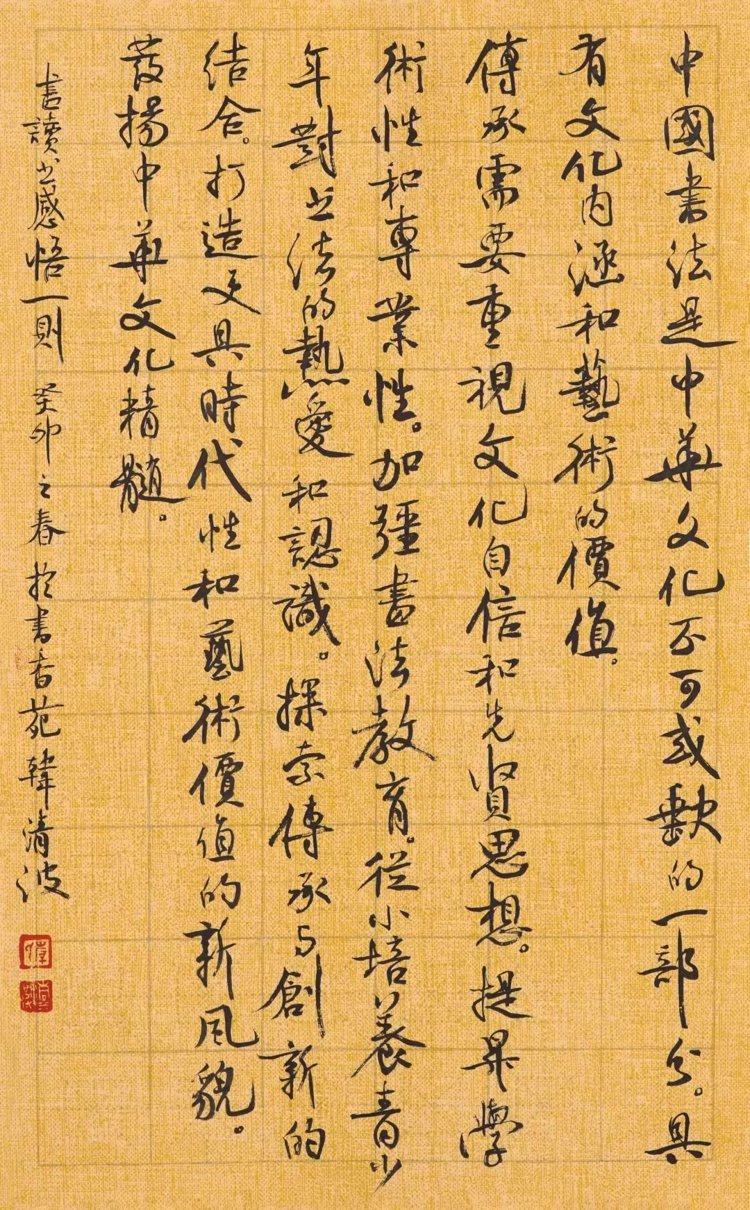 中國書法是中華文化不可或缺的一部分。具
有文化内涵和藝術的價值。
傳承需要重視文化自信和先贤思想。提昇學
術性和專業性。加疆書法教育。從小培養青少
年對书法的熱愛和認識。探索傳承与創新的
结合。打造更具時代性和藝術價值的新風貌。
發揚中華文化精髓。
書讀书感悟一則 癸卯之春於書香苑韓清波